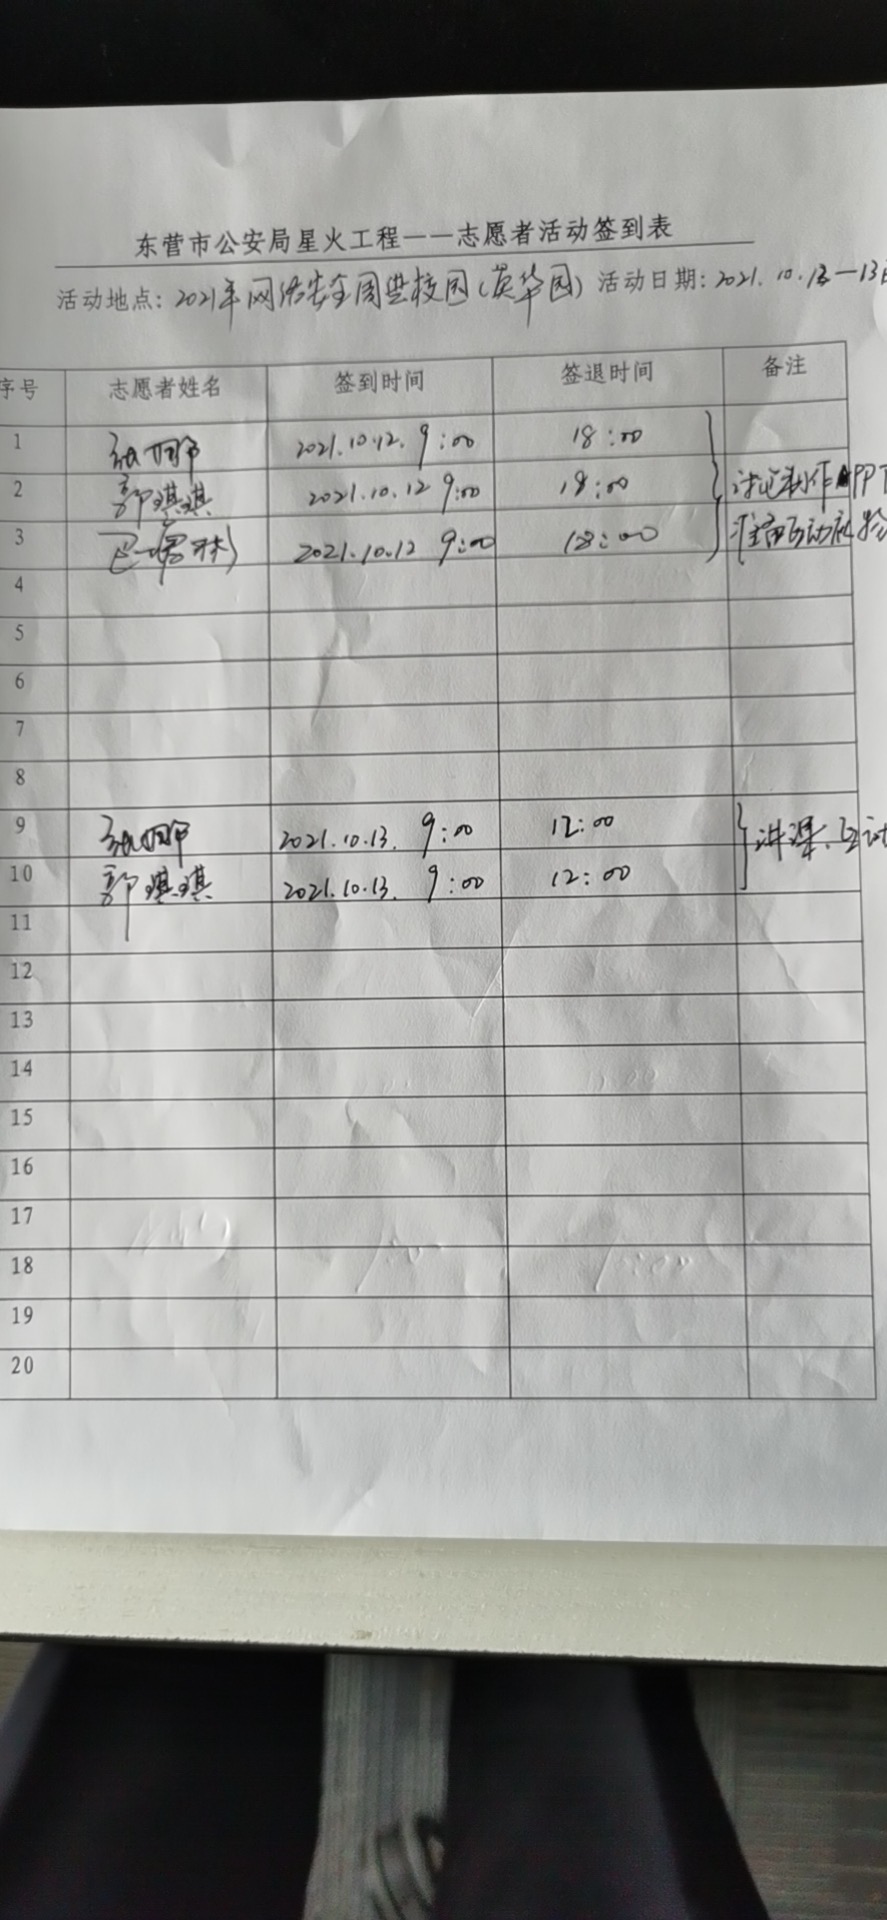 东营市公安局星火工程——志愿者活动签到表
活动地点：2021年网络安全周进校园（英华园） 活动日期：2021.10.12—13日
序号 志愿者姓名 签到时间 签退时间 备注
1 2021.10.12. 9:00 18:00
2 郭琪琪 2021.10.12 9:00 18:00 讨论制作PPT
3 2021.10.12 9:00 18:00 准备互动
4
5
6
7
8
9 2021.10.13. 9:00 12:00 讲课、互动
10 郭琪琪 2021.10.13. 9:00 12:00
11
12
13
14
15
16
17
18
19
20